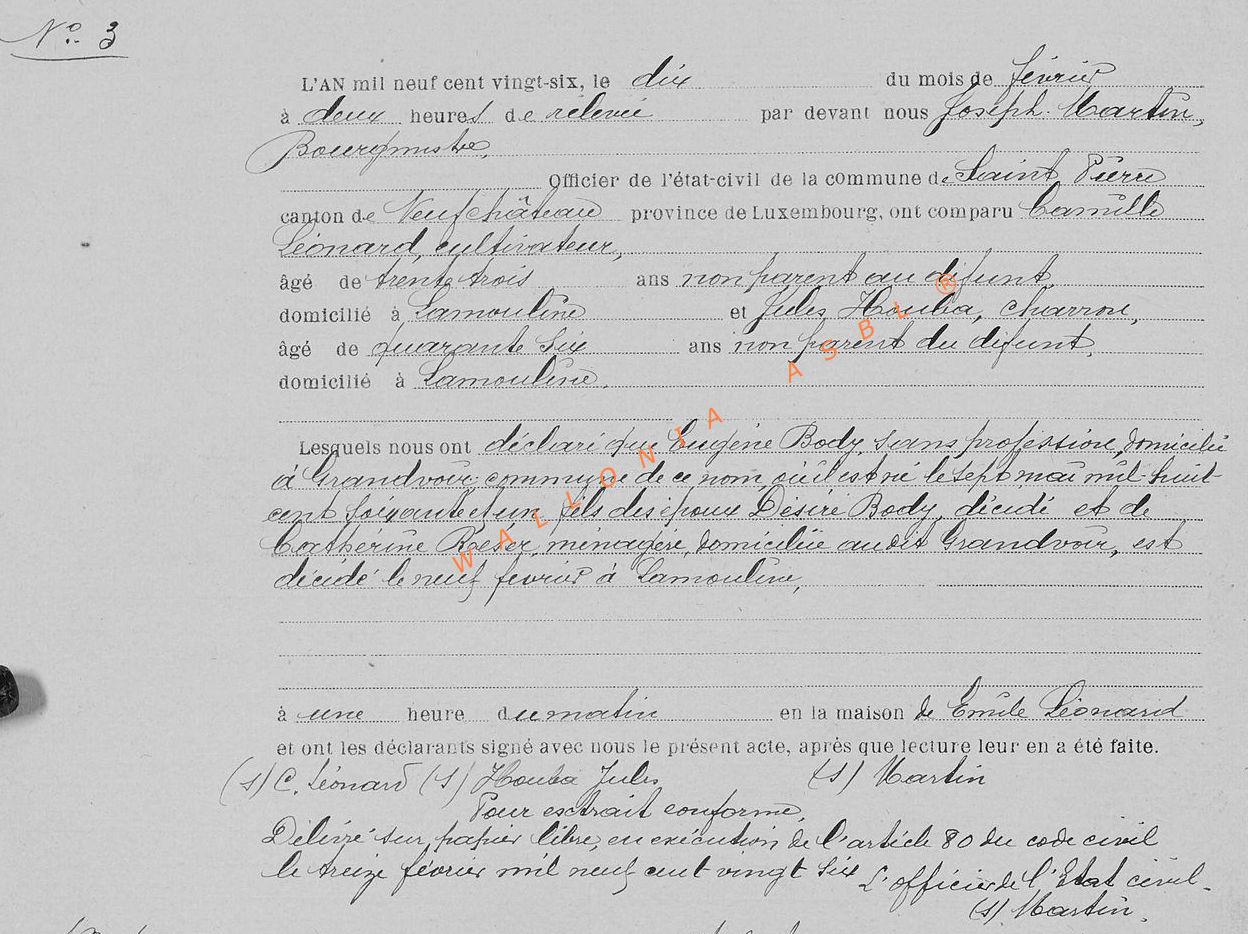 No. 3
L'AN mil neuf cent vingt-six, le dix du mois de février
à deux heures de relevée par devant nous Joseph Martin,
Bourgmestre,
Officier de l'état-civil de la commune de Saint Pierre
canton de Neufchâteau province de Luxembourg, ont comparu Camille
Léonard, cultivateur,
âgé de trente trois ans non parent au défunt,
domicilié à Lamouline et Jules Houba, charron,
âgé de quarante six ans non parent du défunt,
domicilié à Lamouline,
Lesquels nous ont déclaré que Eugène Body, sans profession, domicilié
à Grandvoir commune de ce nom, où il est né le sept mai mil huit
cent soixante et un fils des époux Désiré Body, décédé et de
Catherine Roeser, ménagère, domiciliée audit Grandvoir, est
décédé le neuf février à Lamouline,
à une heure du matin en la maison de Emile Léonard
et ont les déclarants signé avec nous le présent acte, après que lecture leur en a été faite.
(s) C. Léonard (s) Houba Jules (s) Martin
Pour extrait conforme,
Délivré sur papier libre, en exécution de l'article 80 du code civil
le treize février mil neuf cent vingt six L'officier de l'Etat civil.
(s) Martin.
WALLONIA ASBL ®